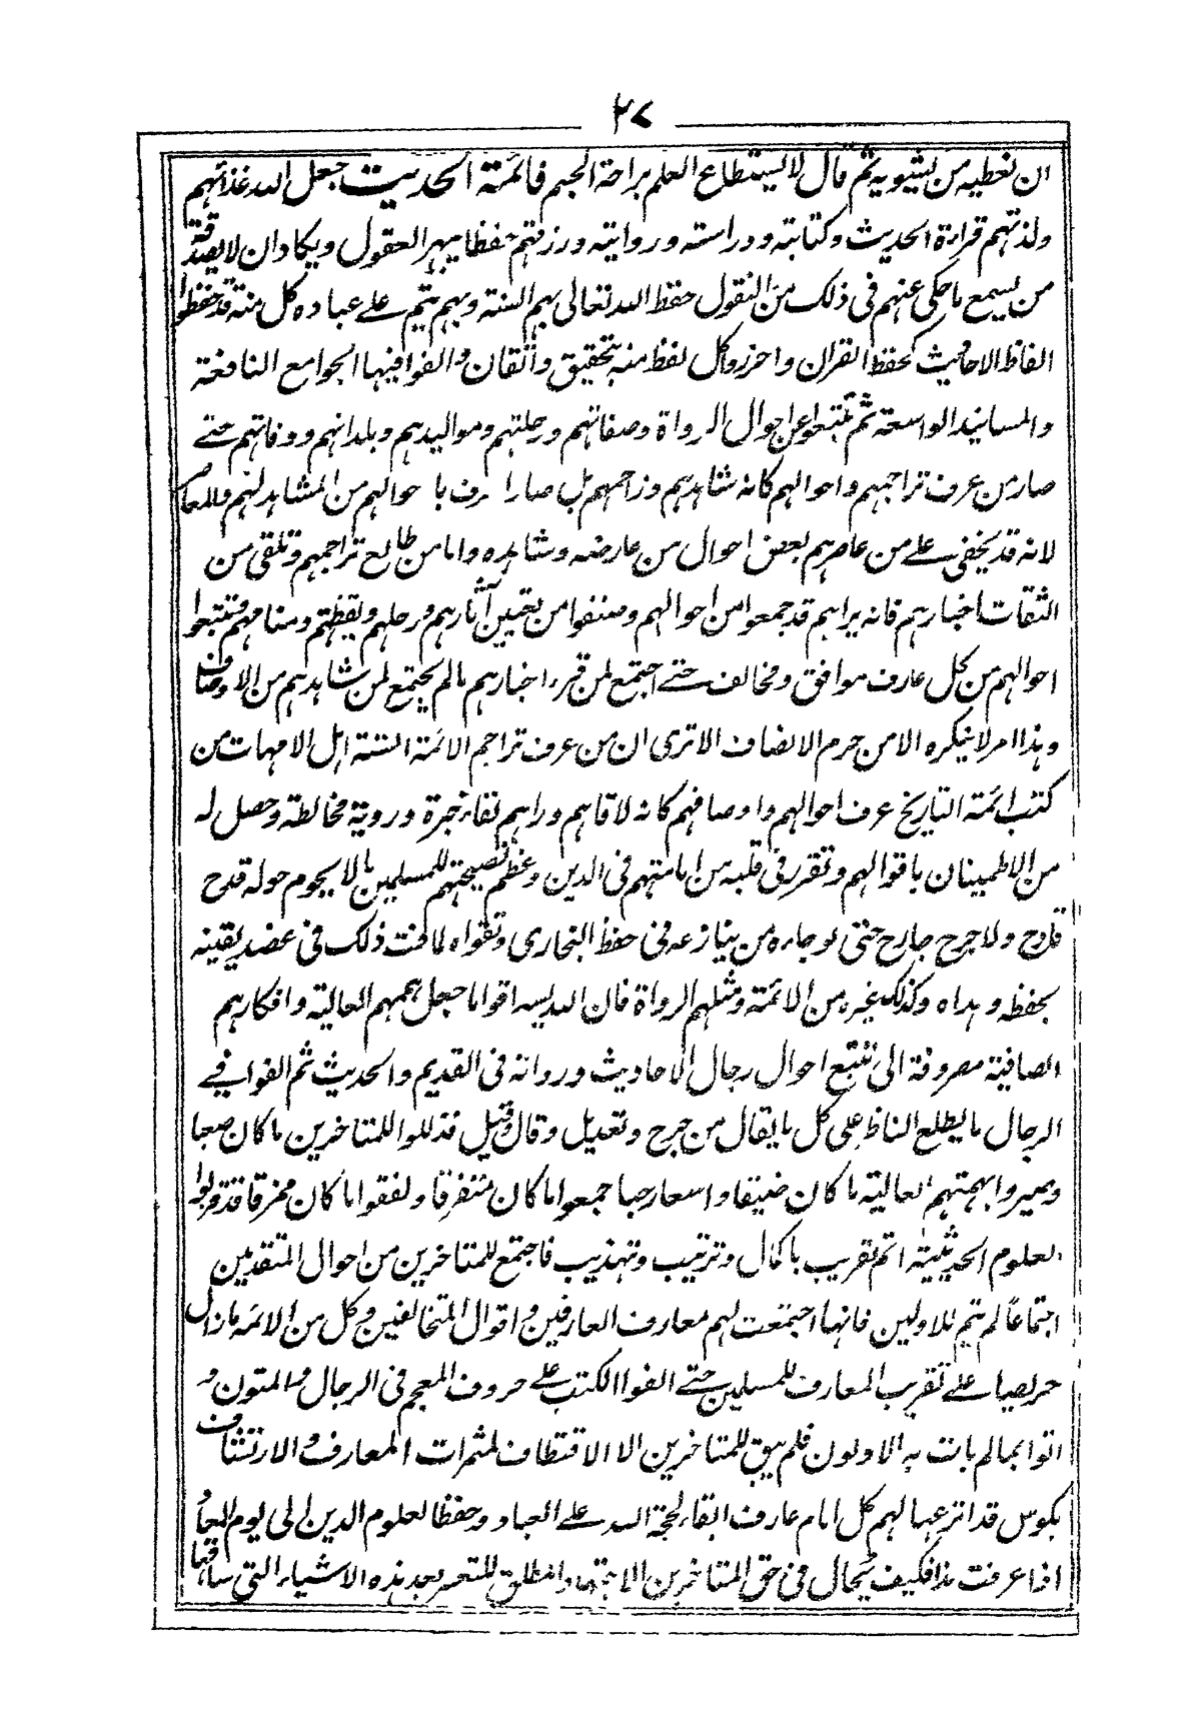 ٢٧
ان نغطيه من يشويه ثم قال لا يستطاع العلم براحة الجسم فائمة الحديث جعل الله غذائهم
ولذتهم قراءة الحديث وكتابته ودراسته وروايته ورزقهم حفظا يبهر العقول ويكاد ان لا يصدق
من يسمع ما حكى عنهم فى ذلك من النقول حفظ الله تعالى بهم السنة وبهم تتم على عباده كل منة قد حفظوا
الفاظ الاحاديث كحفظ القران واحرزوا كل لفظ منه بتحقيق واتقان والفوا فيها الجوامع النافعة
والمسانيد الواسعة ثم تتبعوا عن احوال الرواة وصفاتهم ورحلتهم ومواليدهم وبلدانهم ووفاتهم حتے
صار من عرف تراجمهم واحوالهم كانه شاهدهم وزاحمهم بل صار ا رف با حوالهم من المشاهد لهم والمعا
لانه قد يخفى علے من عاصرهم بعض احوال من عارضه وشاهده واما من طالع تراجمهم وتلقى من
الثقات اخبارهم فانه يراهم قد جمعوا من احوالهم وصنفوا من آثارهم ورحلهم ويقظتهم ومنامهم وتتبعوا
احوالهم من كل عارف موافق ومخالف حتے اجتمع لمن قرء اخبارهم مالم يجتمع لمن شاهدهم من الاوصاف
وهذا امر لا ينكره الا من حرم الانصاف الا ترى ان من عرف تراجم الائمة الستة اهل الامهات من
كتب ائمة التاريخ عرف احوالهم واوصافهم كانه لاقاهم وراهم لقاء خبرة وروية مخالطة وحصل له
من الاطمينان باقوالهم وتقرر فى قلبه من امامتهم فى الدين وعظم نصيحتهم للمسلمين ما لا يحوم حوله قدح
قادح ولا جرح جارح حتى لو جاءه من ينازعه فى حفظ البخارى وتقواه لما فت ذلك فى عضد يقينه
بحفظه وهداه وكذلك غيره من الائمة ومثلهم الرواة فان الله يسر اقواما جعل هممهم العالية وافكارهم
الصافية مصروفة الى تتبع احوال رجال الاحاديث ورواته فى القديم والحديث ثم الفوا فے
الرجال ما يطلع الناظر على كل ما يقال من جرح وتعديل وقال وقيل فذللوا للمتاخرين ما كان صعبا
وصيروا بهمتهم العالية ما كان ضيقا واسعا رحبا جمعوا ما كان متفرقا ولفقوا ما كان ممزقا قد قربوا
العلوم الحديثية اتم تقريب باكمال وترتيب وتهذيب فاجتمع للمتاخرين من احوال المتقدمين
اجتماعاً لم يتم للاولين فانها اجتمعت لهم معارف العارفين واقوال المتخالفين وكل من الائمه ما زال
حريصا علے تقريب المعارف للمسلمين حتے الفوا الكتب علے حروف المعجم فى الرجال والمتون و
اتوا بما لم يات به الاولون فلم يبق للمتاخرين الا الاقتطاف لثمرات المعارف والارتشاف
بكوس قد اترعها لهم كل امام عارف ابقاء لحجة الله علے العباد وحفظا لعلوم الدين الى يوم المعاد
اذا عرفت هذا فكيف يحال فى حق المتاخرين الاجتهاد وانطلق للتعسر بعد هذه الاشياء التى ساقها